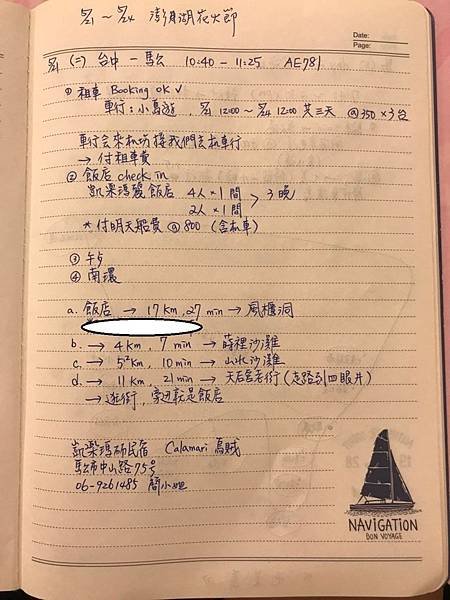 5/21 ~ 5/24 澎湖花火節
Date:
Page:
5/21 (二) 台中 - 馬公 10:40 - 11:25 AE781
① 租車 Booking OK ✓
車行:小島遊, 5/21 12:00 ~ 5/24 12:00 共三天 @350 × 3台
車行會來机場接我們去机車行
→ 付租車費
② 飯店 check in
凱樂瑪麗飯店 4人×1間 > 3晚
2人×1間
* 付明天船費 @800 (含机車)
③ 午餐
④ 南環
a. 飯店 → 17 km, 27 min → 風櫃洞
b. → 4 km, 7 min → 蒔裡沙灘
c. → 5 km, 10 min → 山水沙灘
d. → 11 km, 21 min → 天后宮老街 (走路到四眼井)
→ 逛街, 旁边就是飯店
民宿 Calamari 烏賊
馬公市中山路75号
06-9261485 簡小姐
NAVIGATION
BON VOYAGE